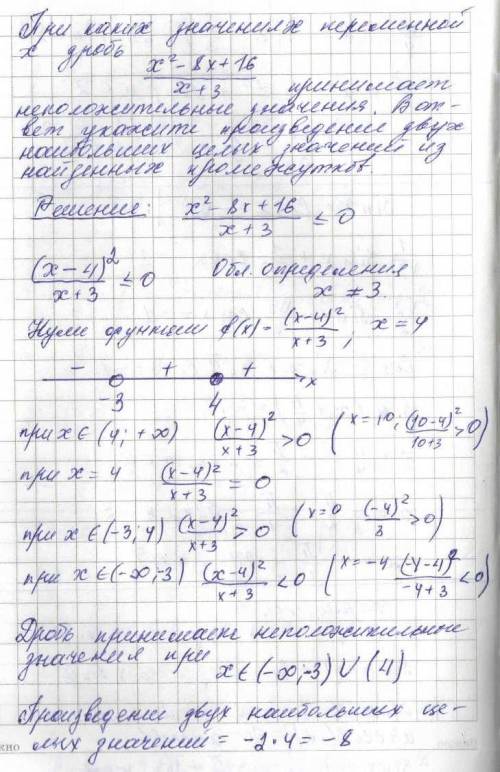 При каких значениях переменной
x дробь
x² - 8x + 16 / x + 3 принимает
неположительные значения. В от-
вет укажите произведение двух
наибольших целых значений из
найденных промежутков.
Решение: x² - 8x + 16 / x + 3 ≤ 0
(x - 4)² / x + 3 ≤ 0 Обл. определения
x ≠ 3.
Нули функции f(x) = (x-4)² / x + 3 ; x = 4
- + + x
-3 4
при x ∈ (4; + ∞) (x-4)² / x + 3 > 0 (x = 10; (10-4)² / 10+3 > 0)
при x = 4 (x-4)² / x + 3 = 0
при x ∈ (-3; 4) (x-4)² / x+3 > 0 (x = 0 (-4)² / 3 > 0)
при x ∈ (-∞; -3) (x-4)² / x + 3 < 0 (x = -4 (-4-4)² / -4+3 < 0)
Дробь принимает неположительные
значения при
x ∈ (-∞; -3) ∪ (4)
Произведение двух наибольших це-
лых значений = -2 · 4 = -8